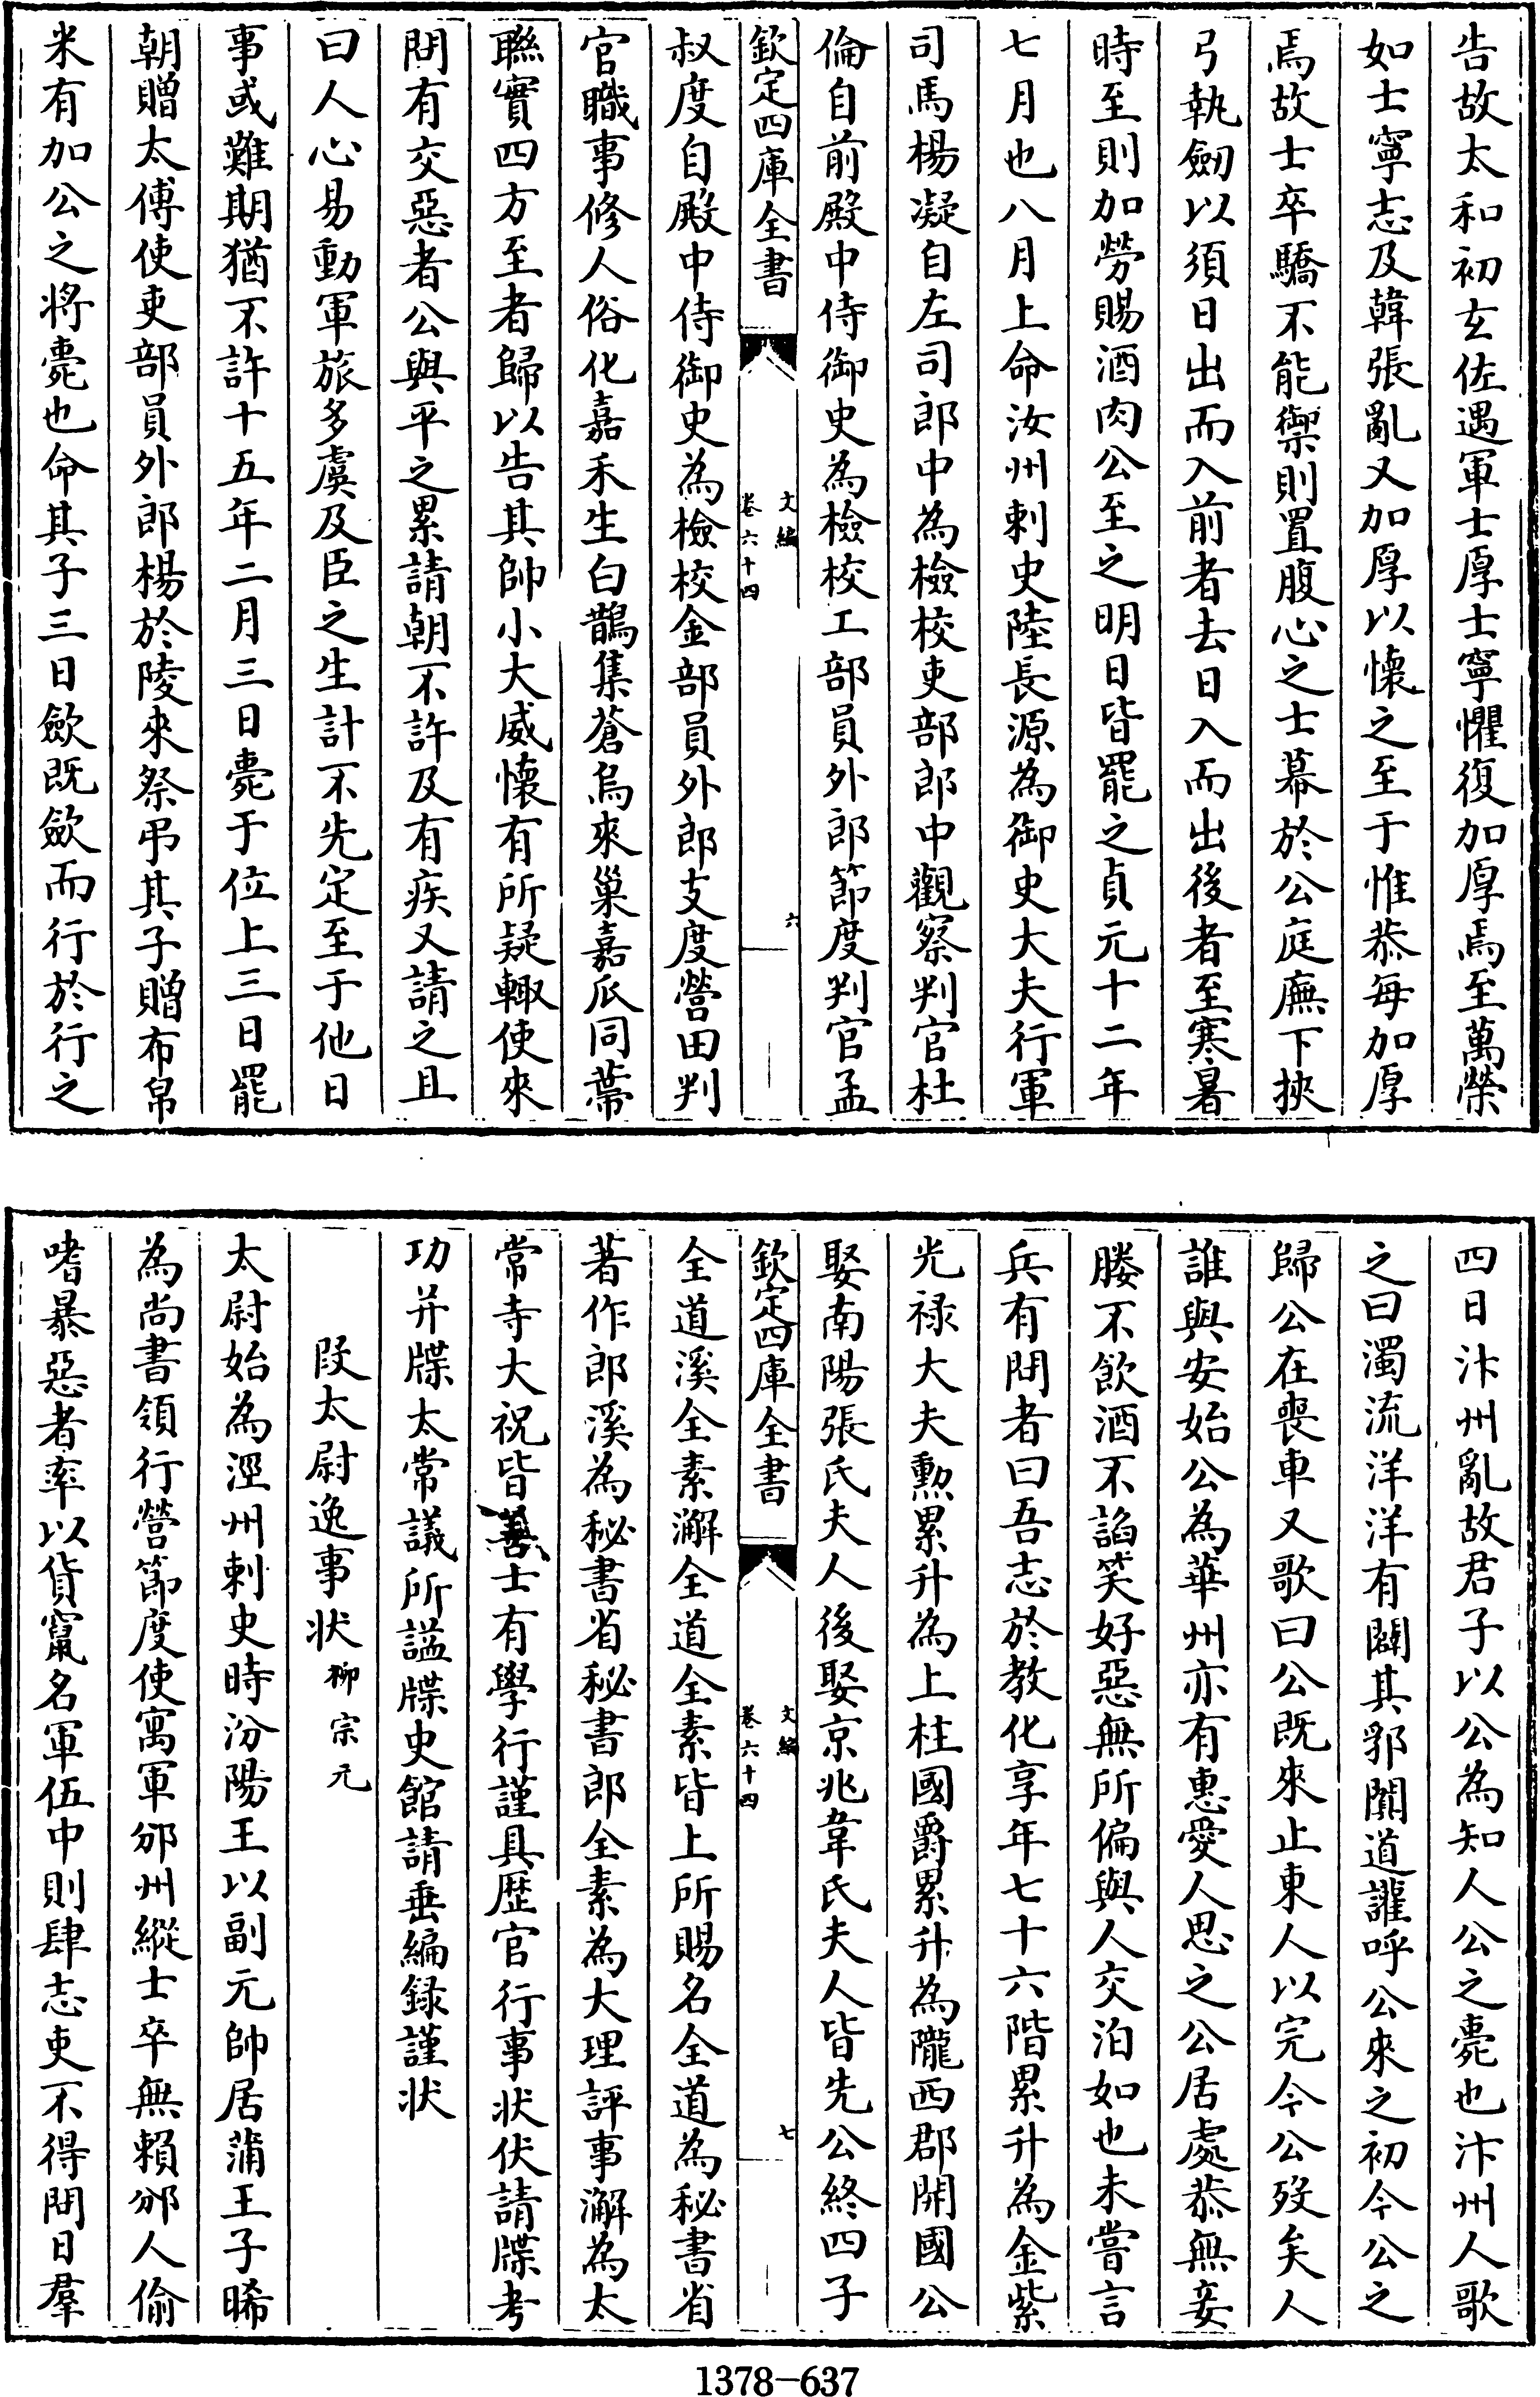 告故太和初玄佐遇軍士厚士寧懼復加厚焉至萬榮
如士寧志及韓張亂又加厚以懷之至于惟恭每加厚
焉故士卒驕不能禦則置腹心之士幕於公庭廡下挾
弓執劒以須日出而入前者去日入而出後者至寒暑
時至則加勞賜酒肉公至之明日皆罷之貞元十二年
七月也八月上命汝州刺史陸長源為御史大夫行軍
司馬楊凝自左司郎中為檢校吏部郎中觀察判官杜
倫自前殿中侍御史為檢校工部員外郎節度判官孟
欽定四庫全書
文編
卷六十四
六
叔度自殿中侍御史為檢校金部員外郎支度營田判
官職事修人俗化嘉禾生白鵲集蒼烏來巢嘉瓜同蔕
聯實四方至者歸以告其帥小大威懷有所疑輙使來
問有交惡者公與平之累請朝不許及有疾又請之且
曰人心易動軍旅多虞及臣之生計不先定至于他日
事或難期猶不許十五年二月三日薨于位上三日罷
朝贈太傅使吏部員外郎楊於陵來祭弔其子贈布帛
米有加公之將薨也命其子三日歛既歛而行於行之
四日汴州亂故君子以公為知人公之薨也汴州人歌
之曰濁流洋洋有闢其郛闐道讙呼公來之初今公之
歸公在喪車又歌曰公既來止東人以完今公歿矣人
誰與安始公為華州亦有惠愛人思之公居處恭無妾
媵不飲酒不諂笑好惡無所偏與人交泊如也未嘗言
兵有問者曰吾志於教化享年七十六階累升為金紫
光禄大夫勲累升為上柱國爵累升為隴西郡開國公
娶南陽張氏夫人後娶京兆韋氏夫人皆先公終四子
欽定四庫全書
文編
卷六十四
七
全道溪全素澥全道全素皆上所賜名全道為秘書省
著作郎溪為秘書省秘書郎全素為大理評事澥為太
常寺大祝皆善士有學行謹具歴官行事状伏請牒考
功并牒太常議所謚牒史館請垂編録謹状
段太尉逸事状柳宗元
太尉始為涇州刺史時汾陽王以副元帥居蒲王子晞
為尚書領行營節度使寓軍邠州縱士卒無賴邠人偷
嗜暴惡者率以貨竄名軍伍中則肆志吏不得問日羣
1378-637